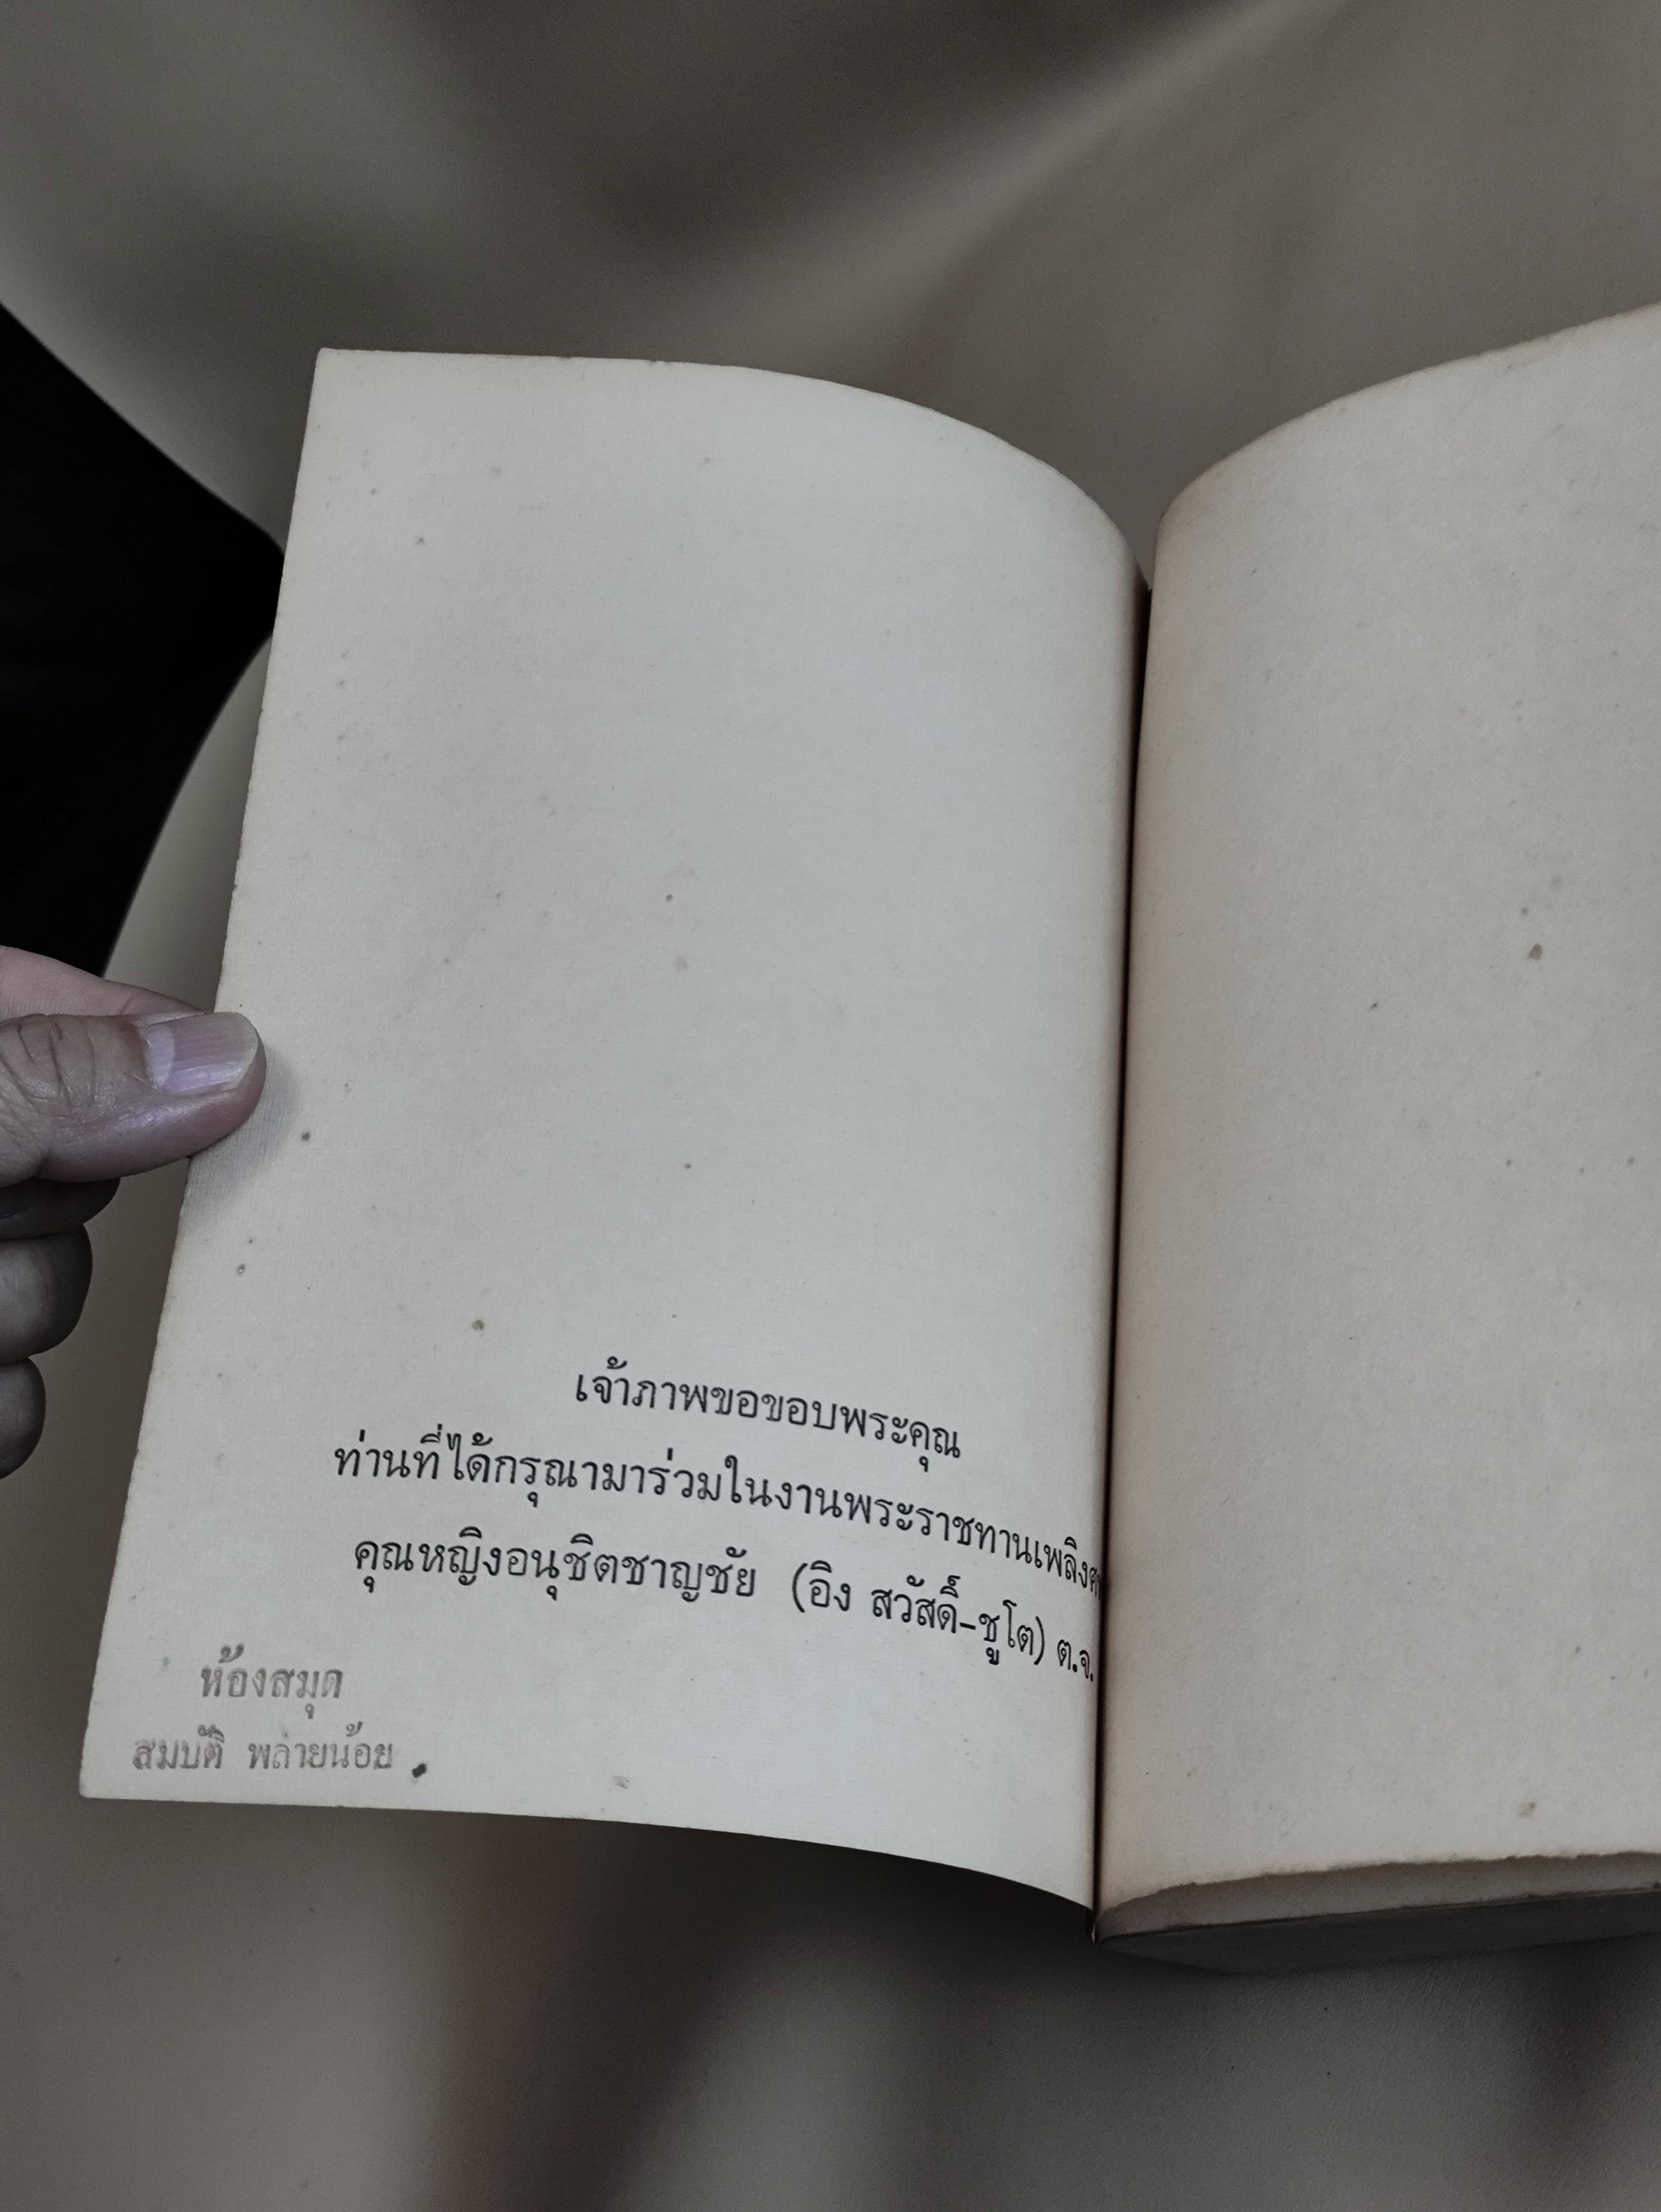 เจ้าภาพขอขอบพระคุณ
ท่านที่ได้กรุณามาร่วมในงานพระราชทานเพลิง
คุณหญิงอนุชิตชาญชัย (อิง สวัสดิ์-ชูโต) ต.จ.
ห้องสมุด
สมบัติ พลายน้อย